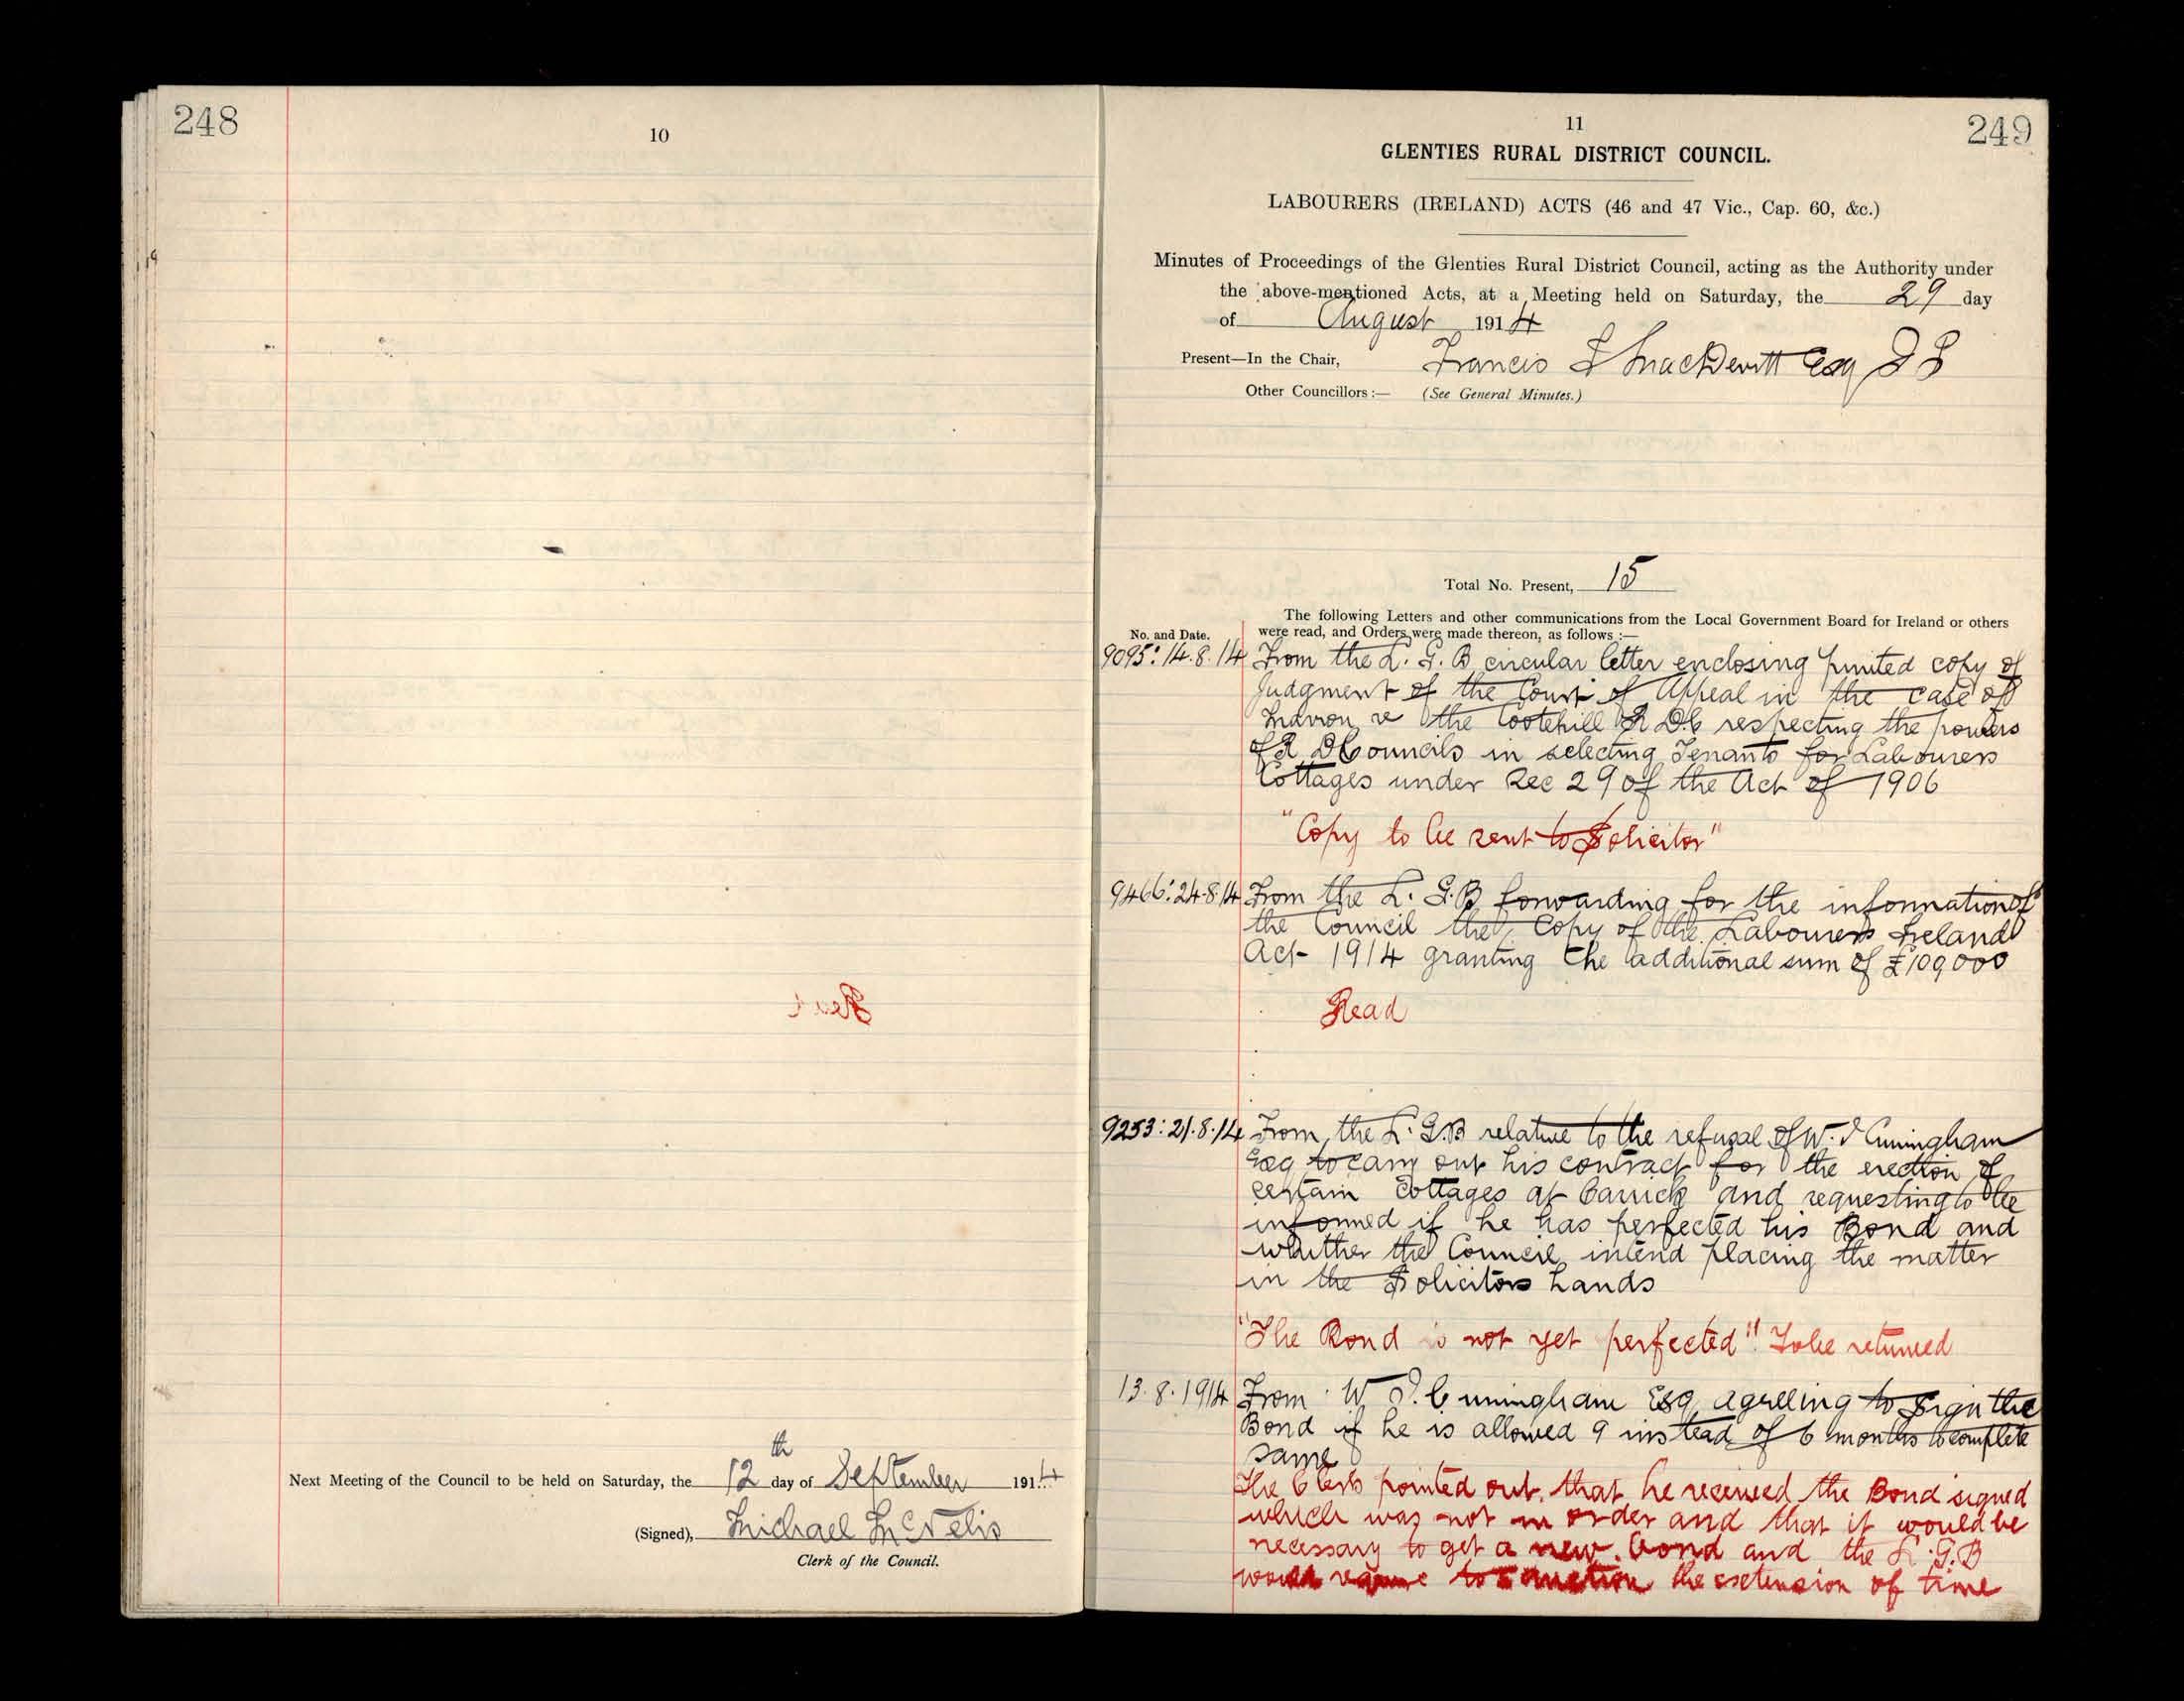 248
10
Next Meeting of the Council to be held on Saturday, the 12th day of September 1914
(Signed), Michael McNelis
Clerk of the Council.
249
11
GLENTIES RURAL DISTRICT COUNCIL.
LABOURERS (IRELAND) ACTS (46 and 47 Vic., Cap. 60, &c.)
Minutes of Proceedings of the Glenties Rural District Council, acting as the Authority under
the above-mentioned Acts, at a Meeting held on Saturday, the 29 day
of August 1914
Present—In the Chair, Francis J MacDevitt Esq J P
Other Councillors:— (See General Minutes.)
Total No. Present, 15
The following Letters and other communications from the Local Government Board for Ireland or others
No. and Date. were read, and Orders were made thereon, as follows:—
9095: 14.8.14 From the L. G. B circular letter enclosing printed copy of
Judgment of the Court of Appeal in the case of
re the Cootehill R D.C respecting the powers
of R D Councils in selecting Tenants for Labourers
Cottages under Sec 29 of the Act of 1906
"Copy to be sent to Solicitor"
9466: 24.8.14 From the L. G.B forwarding for the information of
the Council the Copy of the Labourers Ireland
Act 1914 granting the additional sum of £100,000
Read
9253: 21.8.14 From the L. G.B relative to the refusal of W. J Cuningham
Esq to carry out his contract for the erection of
certain Cottages at Carrick and requesting to be
informed if he has perfected his Bond and
whither the Council intend placing the matter
in the Solicitors hands
"The Bond is not yet perfected" To be returned
13.8.1914 From W J. Cunningham Esq agreeing to sign the
Bond if he is allowed 9 instead of 6 months to complete
same
The Clerk pointed out that he received the Bond signed
which was not in order and that it would be
necessary to get a new bond and the L. G.B
would require to sanction the extension of time